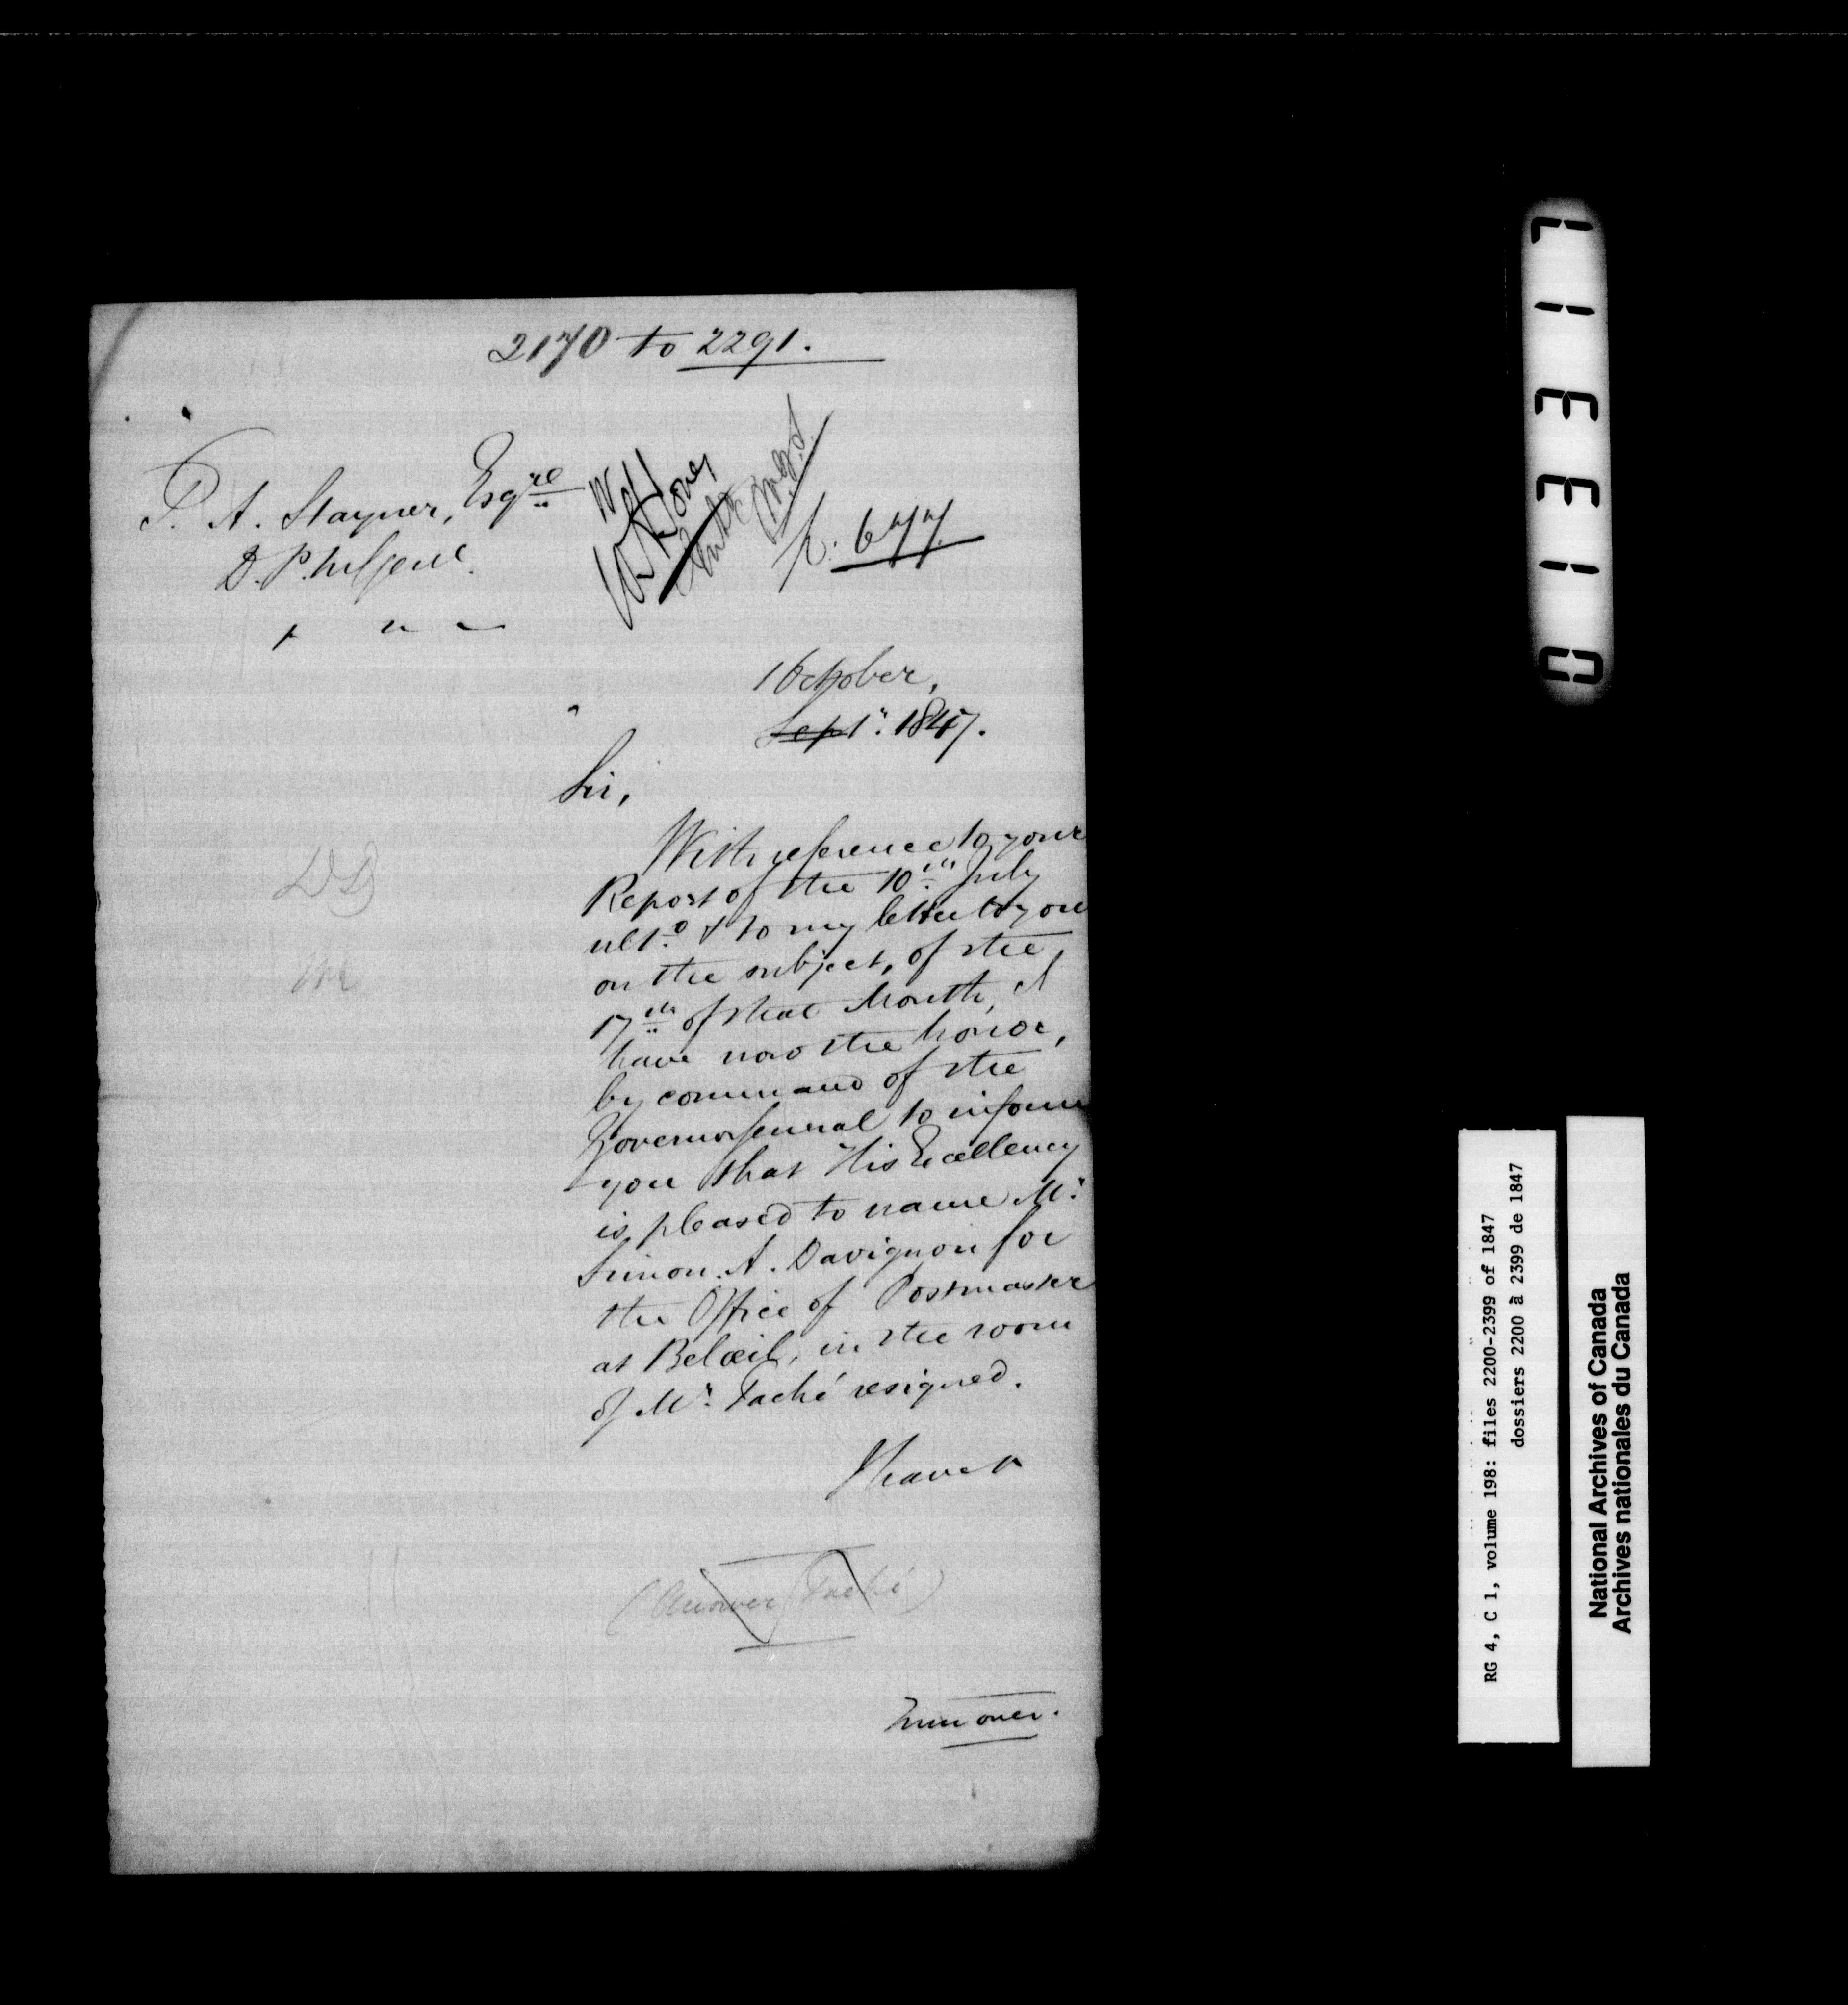 2170 to 2291.
T. A. Stayner, Esqre
D. P. M. Genl.
p. 677
1 October,
Sept. 1847.
Sir,
With reference to your
Report of the 10th July
ulto. & to my letter to you
on the subject, of the
17th of that Month, I
have now the honor,
by command of the
Governor General to inform
you that His Excellency
is pleased to name Mr.
Simon. A. Davignon for
the Office of Postmaster
at Belœil, in the room
of Mr. Taché resigned.
I have &
(Answer Taché)
Turn over.
DD
01331 7
RG 4, C 1, volume 198: files 2200-2399 of 1847
dossiers 2200 à 2399 de 1847
National Archives of Canada
Archives nationales du Canada